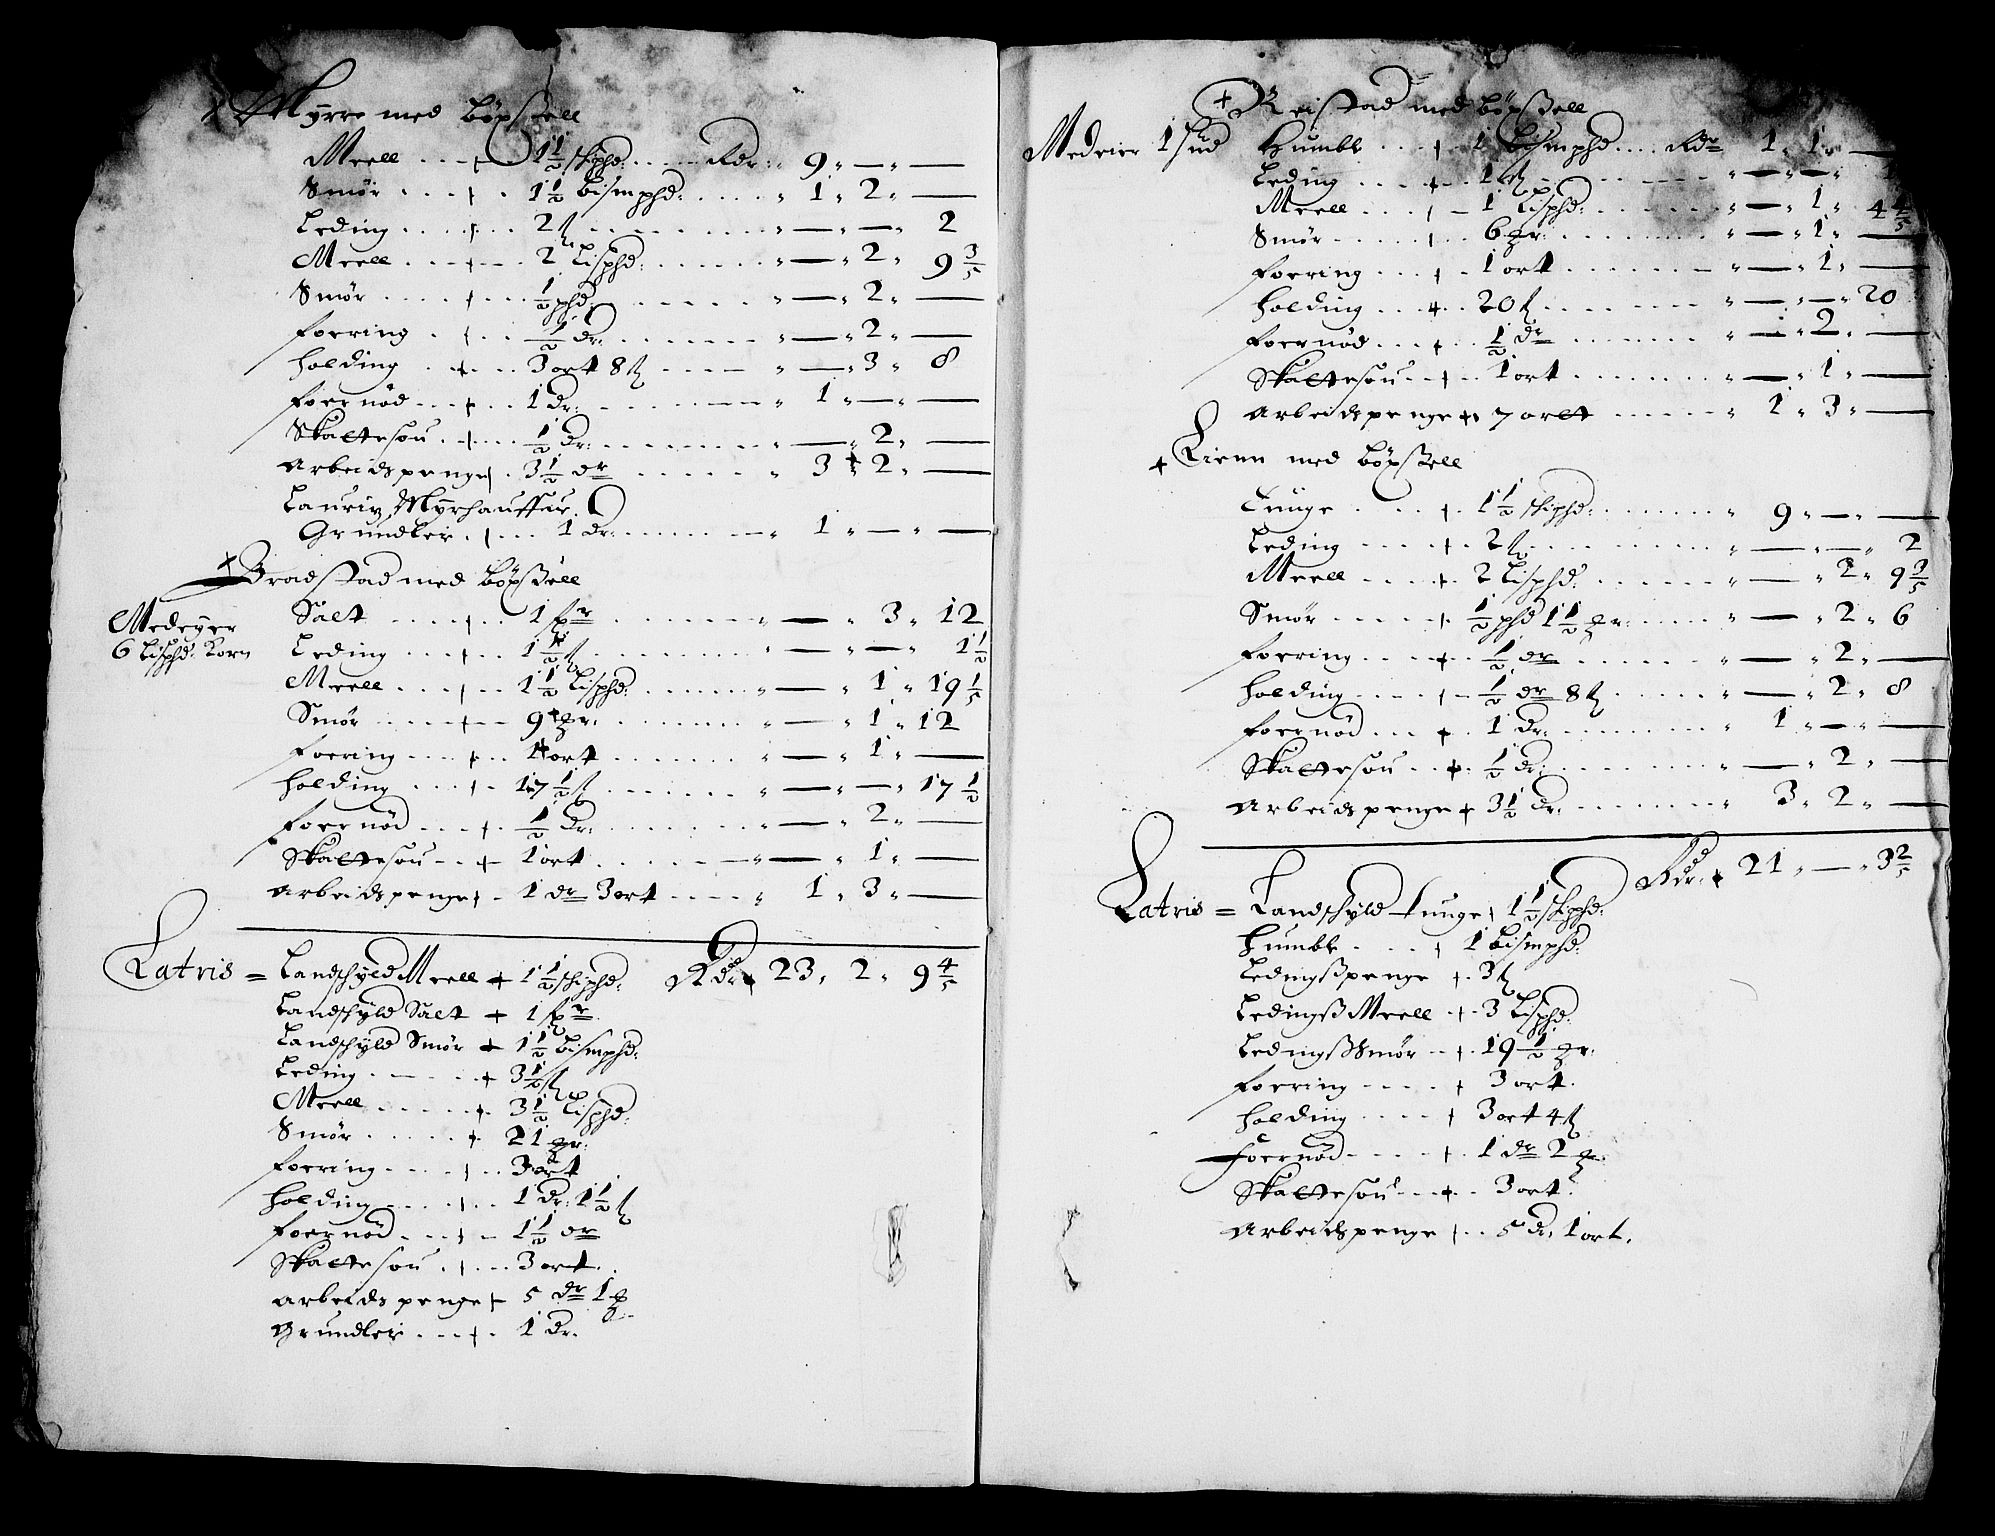 + Myrre med bøxsell
Meell . . . + 1 1/2 skiphd: . . . . Rdr: 9 " — " —
Smør . . . + . 1 1/2 bismphd: . . . . " 1 " 2 " —
Leding . . . + . . 2 ß . . . . . " — " — " 2
Meell . . . + . . 2 Lisphd: . . . . " — " 2 " 9 3/5
Smør . . . + . . 1/2 phd: . . . . " — " 2 " —
foering . + . . 1/2 dr: . . . . " — " 2 " —
holding . + . . 3 ort 8 ß . . . . " — " 3 " 8
foernød . . + . . 1 dr: . . . . " 1 " — " —
Skattesou . + . . 1/2 dr: . . . . " — " 2 " —
Arbeidspenge + . 3 1/2 dr . . . . " 3 " 2 " —
Lauriz Myrhauffuer.
Grundleie . + . . 1 dr: . . . . " 1 " — " —
+ Bradstad med bøxsell
Medeyer
6 Lisphd: Korn
Salt . . . + . . 1 spr . . . . " — " 3 " 12
Leding . . . + . . 1 1/2 ß . . . . " — " — " 1 1/2
Meell . . . + . . 1 1/2 Lisphd: . . . . " — " 1 " 19 1/5
Smør . . . + . . 9 mr: . . . . " — " 1 " 12
foering . . + . . 1 ort . . . . " — " 1 " —
holding . . + . 17 1/2 ß . . . . " — " — " 17 1/2
foernød . . + . 1/2 dr: . . . . " — " 2 " —
Skattesou . . + 1 ort . . . . " — " 1 " —
Arbeidspenge + . 1 dr 3 ort . . . . " 1 " 3 " —
Latris = Landschyld Meell + 1 1/2 schiphd: Rdr + 23 " 2 " 9 4/5
Landschyld Salt + 1 spr
Landschyld Smør + 1 1/2 bismphd:
Leding . . . + 3 1/2 ß
Meell . . . + . 3 1/2 Lisphd:
Smør . . . + . 21 mr:
foering . . . + . . 3 ort
holding . . . + . . 1 dr: 1 1/2 ß
foernød . . . + . 1 1/2 dr
Skattesou . + . . . 3 ort .
Arbeidspenge + 5 dr 1
Grundleie . . . + . 1 dr.
+ Reistad med bøxsell
Medeier 1 hud Humble . . + . 1 bismphd . . . Rdr 1 " 1 " —
Leding . . . + . . 1 ß . . . . " — " — "
Meell . . . + . 1 Lisphd: . . . . " — " 1 " 4 4/5
Smør . . . + . . 6 mr: . . . . " — " 1 " —
foering . . + . . 1 ort . . . . " — " 1 " —
holding . . + . . 20 ß . . . . " — " — " 20
foernød . . + . . 1/2 dr . . . . " — " 2 " —
Skattesou . . + . . 1 ort . . . . " — " 1 " —
Arbeidspenge + 7 ortt . . . . " 1 " 3 " —
+ Lienn med bøxsell
Tunge . . . + . 1 1/2 skiphd: . . . . " 9 " — " —
Leding . . . + . 2 ß . . . . " — " — " 2
Meell . . . + . 2 Lisphd: . . . . " — " 2 " 9 3/5
Smør . . . + . 1/2 phd 1 1/2 mr: . . . . " — " 2 " 6
foering . . + . . 1/2 dr . . . . " — " 2 " —
holding . . + . 1/2 dr 8 ß . . . . " — " 2 " 8
foernød . . + . 1 dr: . . . . " 1 " — " —
Skattesou . . + . 1/2 dr: . . . . " — " 2 " —
Arbeidspenge + 3 1/2 dr: . . . . " 3 " 2 " —
Rdr: + 21 " — " 3 2/5
Latris = Landschyld Tunge + 1 1/2 skiphd:
Humble . . . + 1 bismphd:
Ledingsspenge + . 3 ß
Ledingss Meell . + . 3 Lisphd:
Ledingss Smør . . + . 19 1/2 mr:
foering . . . + 3 ort.
holding . . . + 3 ort 4 ß
foernød . . . + . 1 dr 2
Skattesou . . . + . 3 ort.
Arbeidspenge + . . 5 dr, 1 ort.